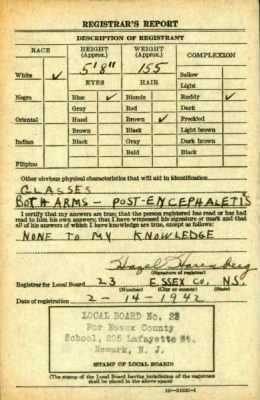 REGISTRAR'S REPORT
DESCRIPTION OF REGISTRANT
RACE HEIGHT (Approx.) WEIGHT (Approx.) COMPLEXION
5'8" 155
White ✓ EYES HAIR Sallow
Light
Negro Blue ✓ Blonde Ruddy ✓
Gray Red Dark
Oriental Hazel Brown ✓ Freckled
Brown Black Light brown
Indian Black Gray Dark brown
Bald Black
Filipino
Other obvious physical characteristics that will aid in identification
GLASSES
BOTH ARMS - POST-ENCEPHALETIS
I certify that my answers are true; that the person registered has read or has had
read to him his own answers; that I have witnessed his signature or mark and that
all of his answers of which I have knowledge are true, except as follows:
NONE TO MY KNOWLEDGE
Hazel
(Signature of registrar)
Registrar for Local Board 23 ESSEX CO. N.J.
(Number) (City or county) (State)
Date of registration 2-14-1942
LOCAL BOARD No. 23
For Essex County
School, 205 Lafayette St.
Newark, N. J.
STAMP OF LOCAL BOARD
(The stamp of the Local Board having jurisdiction of the registrant
shall be placed in the above space)